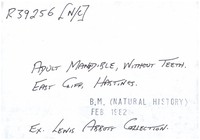 R39256 [N/C]
ADULT MANDIBLE, WITHOUT TEETH.
EAST CLIFF, HASTINGS.
B.M. (NATURAL HISTORY)
FEB 1982
EX. LEWIS ABBOTT COLLECTION.